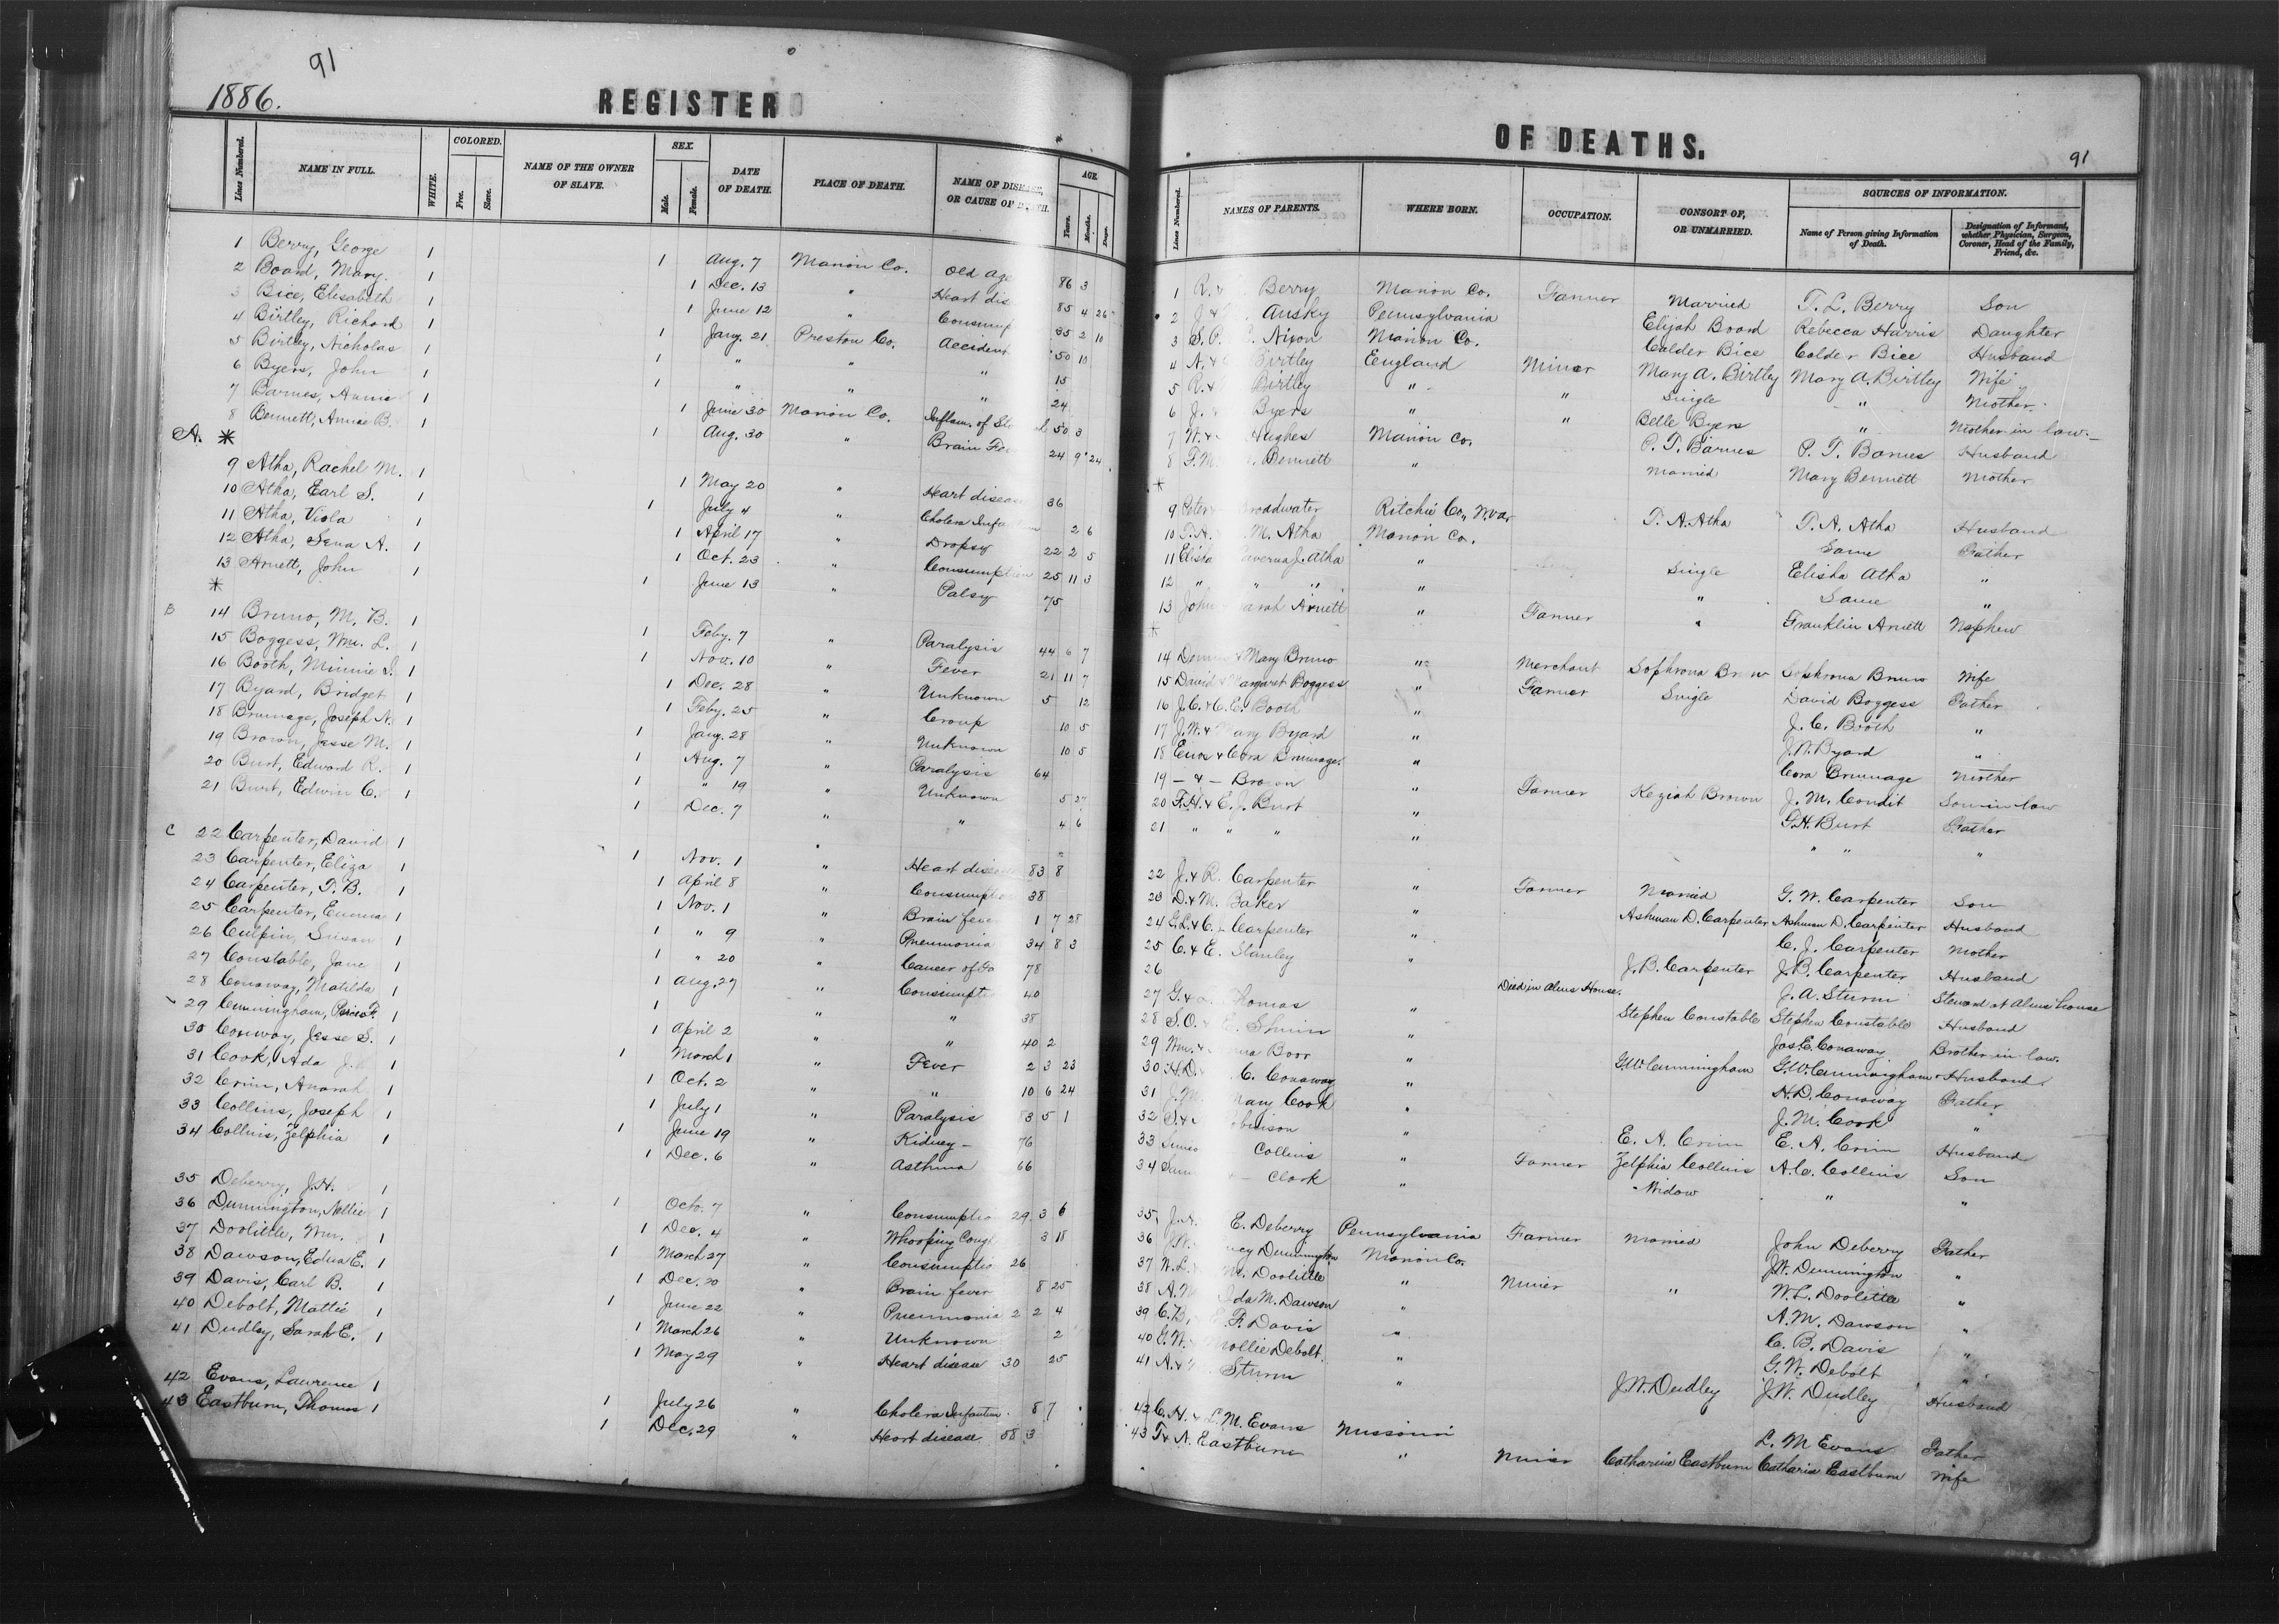 91
1886. REGISTER OF DEATHS. 91
Lines Numbered. NAME IN FULL. WHITE. COLORED. Free. Slave. NAME OF THE OWNER OF SLAVE. SEX. Male. Female. DATE OF DEATH. PLACE OF DEATH. NAME OF DISEASE, OR CAUSE OF DEATH. AGE. Years. Months. Days. Lines Numbered. NAMES OF PARENTS. WHERE BORN. OCCUPATION. CONSORT OF, OR UNMARRIED. SOURCES OF INFORMATION. Name of Person giving Information of Death. Designation of Informant, whether Physician, Surgeon, Coroner, Head of the Family, Friend, &c.
1 Berry, George 1 1 Aug. 7 Marion Co. Old Age 86 3 1 R. & Berry Marion Co. Farmer Married T. L. Berry Son
2 Board, Mary 1 1 Dec. 13 " Heart dis 85 4 26 2 J. & Ausky Pennsylvania Elijah Board Rebecca Harris Daughter
3 Bice, Elisabeth 1 1 June 12 " Consump 35 2 10 3 S. P. Nixon Marion Co. Calder Bice Calder Bice Husband
4 Birtley, Richard 1 1 Jany. 21 Preston Co. Accident 50 10 4 N. & Birtley England Miner Mary A. Birtley Mary A. Birtley Wife
5 Birtley, Nicholas 1 1 " " " 15 5 R. & Birtley " " Single " Mother
6 Byers, John 1 1 " " " 24 6 J. & Byers " " Belle Byers " Mother in law
7 Barnes, Annie 1 1 June 30 Marion Co. Inflam. of St 50 3 7 W. & Hughes Marion Co. P. T. Barnes P. T. Barnes Husband
8 Bennett, Annie B. 1 1 Aug. 30 " Brain Fev 24 9 24 8 F. M. Bennett " Married Mary Bennett Mother
A. * *
9 Atha, Rachel M. 1 1 May 20 " Heart disease 36 9 Peter Broadwater Ritchie Co., W. Va. T. A. Atha T. A. Atha Husband
10 Atha, Earl S. 1 1 July 4 " Cholera Infantum 2 6 10 T. A. M. Atha Marion Co. Same Father
11 Atha, Viola 1 1 April 17 " Dropsy 22 2 5 11 Elisha Laverna J. Atha " Single Elisha Atha "
12 Atha, Sena A. 1 1 Oct. 23 " Consumption 25 11 3 12 " " " " " Same "
13 Arnett, John 1 1 June 13 " Palsy 75 13 John & Sarah Arnett " Farmer " Franklin Arnett Nephew
* *
B 14 Bruno, M. B. 1 1 Feby. 7 " Paralysis 44 6 7 14 Dennis & Mary Bruno " Merchant Sophrona Bruno Sophrona Bruno Wife
15 Boggess, Wm. L. 1 1 Nov. 10 " Fever 21 11 7 15 David & Margaret Boggess " Farmer Single David Boggess Father
16 Booth, Minnie D. 1 1 Dec. 28 " Unknown 5 12 16 J. C. & C. E. Booth " J. C. Booth "
17 Byard, Bridget 1 1 Feby. 25 " Croup 10 5 17 J. W. & Mary Byard " J. W. Byard "
18 Brumage, Joseph N. 1 1 Jany. 28 " Unknown 10 5 18 Enos & Cora Brumage " Cora Brumage Mother
19 Brown, Jesse M. 1 1 Aug. 7 " Paralysis 64 19 — & — Brown " Farmer Keziah Brown J. M. Condit Son-in-law
20 Burt, Edward R. 1 1 " 19 " Unknown 5 27 20 F. H. & E. J. Burt " G. H. Burt Father
21 Burt, Edwin C. 1 1 Dec. 7 " " 4 6 21 " " " " " " "
C 22 Carpenter, David 1 1 Nov. 1 " Heart disease 83 8 22 J. & R. Carpenter " Farmer Married G. W. Carpenter Son
23 Carpenter, Eliza 1 1 April 8 " Consumption 38 23 D. & M. Baker " Ashman D. Carpenter Ashman D. Carpenter Husband
24 Carpenter, T. B. 1 1 Nov. 1 " Brain fever 1 7 28 24 G. L. & C. J. Carpenter " C. J. Carpenter Mother
25 Carpenter, Emma 1 1 " 9 " Pneumonia 34 8 3 25 C. & E. Stanley " J. B. Carpenter J. B. Carpenter Husband
26 Culpin, Susan 1 1 " 20 " Cancer of 78 26 Died in Alms House. J. A. Sturm Steward at Alms house
27 Constable, Jane 1 1 Aug. 27 " Consumpti 40 27 G. & Thomas " Stephen Constable Stephen Constable Husband
28 Conaway, Matilda 1 1 " " 38 28 S. O. & E. Shinn " Jas. E. Conaway Brother in law.
29 Cunningham, F. 1 1 April 2 " " 40 2 29 Wm. & Boor " G. W. Cunningham G. W. Cunningham Husband
30 Conway, Jesse S. 1 1 March 1 " Fever 2 3 23 30 H. D. C. Conaway " H. D. Conaway Father
31 Cook, Ada J. 1 1 Oct. 2 " " 10 6 24 31 J. M. Mary Cook " J. M. Cook "
32 Crim, Anarah 1 1 July 1 " Paralysis 83 5 1 32 S. & Robinson " E. A. Crim E. A. Crim Husband
33 Collins, Joseph 1 1 June 19 " Kidney — 76 33 Collins " Farmer Zelphia Collins A. C. Collins Son
34 Collins, Zelphia 1 1 Dec. 6 " Asthma 66 34 Sam & — Clark " Widow " "
35 Deberry, J. H. 1 1 Oct. 7 " Consumption 29 3 6 35 J. E. Deberry Pennsylvania Farmer Married John Deberry Father
36 Dunnington, Nellie 1 1 Dec. 4 " Whooping Cough 3 18 36 J. W. Dunnington Marion Co. J. W. Dunnington "
37 Doolittle, Wm. 1 1 March 27 " Consumptio 26 37 W. L. M. Doolittle " Miner " W. L. Doolittle "
38 Dawson, Edna E. 1 1 Dec. 20 " Brain fever 8 25 38 A. M. Ida M. Dawson " A. M. Dawson "
39 Davis, Carl B. 1 1 June 22 " Pneumonia 2 2 4 39 C. B. F. Davis " C. B. Davis "
40 Debolt, Mattie 1 1 March 26 " Unknown 2 40 G. W. Mollie Debolt " G. W. Debolt "
41 Dudley, Sarah E. 1 1 May 29 " Heart disease 30 25 41 A. & Sturm " J. W. Dudley J. W. Dudley Husband
42 Evans, Lawrence 1 1 July 26 " Cholera Infantum 8 7 42 C. H. & L. M. Evans Missouri L. M Evans Father
43 Eastburn, Thomas 1 1 Dec. 29 " Heart disease 58 3 43 T. & N. Eastburn " Miner Catharine Eastburn Catharine Eastburn Wife